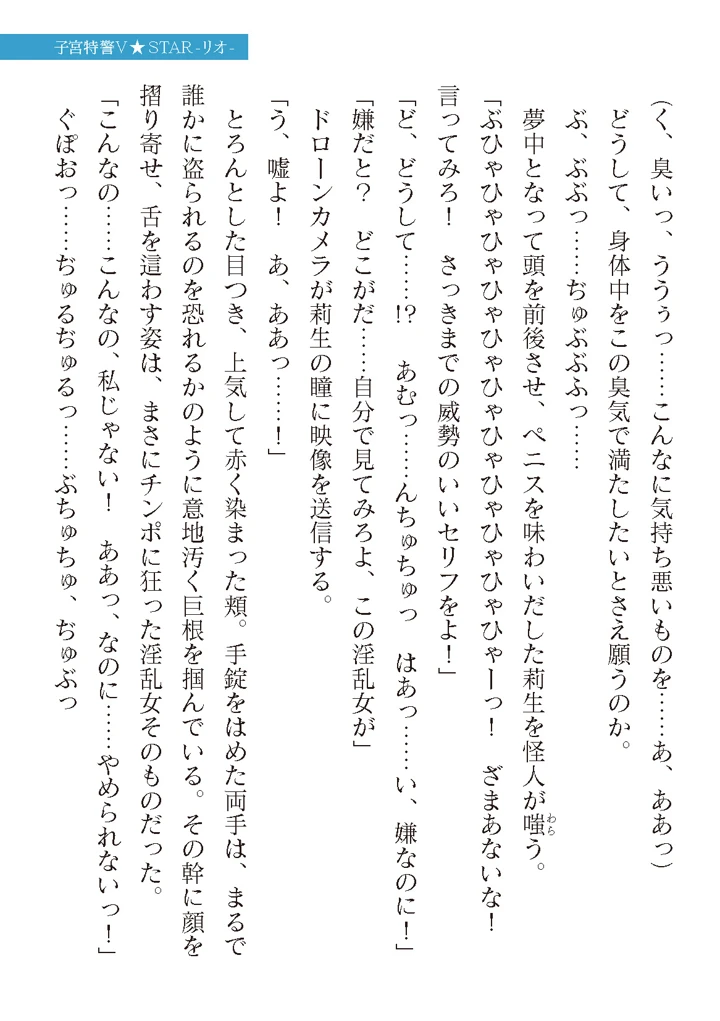 子宮特警V★STAR-リオ-
(く、臭いっ、ううぅっ……こんなに気持ち悪いものを……あ、ああっ)
どうして、身体中をこの臭気で満たしたいとさえ願うのか。
ぶ、ぶぶっ……ぢゅぶぶふっ……
夢中となって頭を前後させ、ペニスを味わいだした莉生を怪人が嗤う。
わら
「ぶひゃひゃひゃひゃひゃひゃひゃひゃひゃひゃーっ！　ざまあないな！
言ってみろ！　さっきまでの威勢のいいセリフをよ！」
「ど、どうして……!?　あむっ……んちゅちゅっ　はあっ……い、嫌なのに！」
「嫌だと？　どこがだ……自分で見てみろよ、この淫乱女が」
ドローンカメラが莉生の瞳に映像を送信する。
「う、嘘よ！　あ、ああっ……！」
とろんとした目つき、上気して赤く染まった頬。手錠をはめた両手は、まるで
誰かに盗られるのを恐れるかのように意地汚く巨根を掴んでいる。その幹に顔を
摺り寄せ、舌を這わす姿は、まさにチンポに狂った淫乱女そのものだった。
「こんなの……こんなの、私じゃない！　ああっ、なのに……やめられないっ！」
ぐぽおっ……ぢゅるぢゅるっ……ぶちゅちゅ、ぢゅぶっ